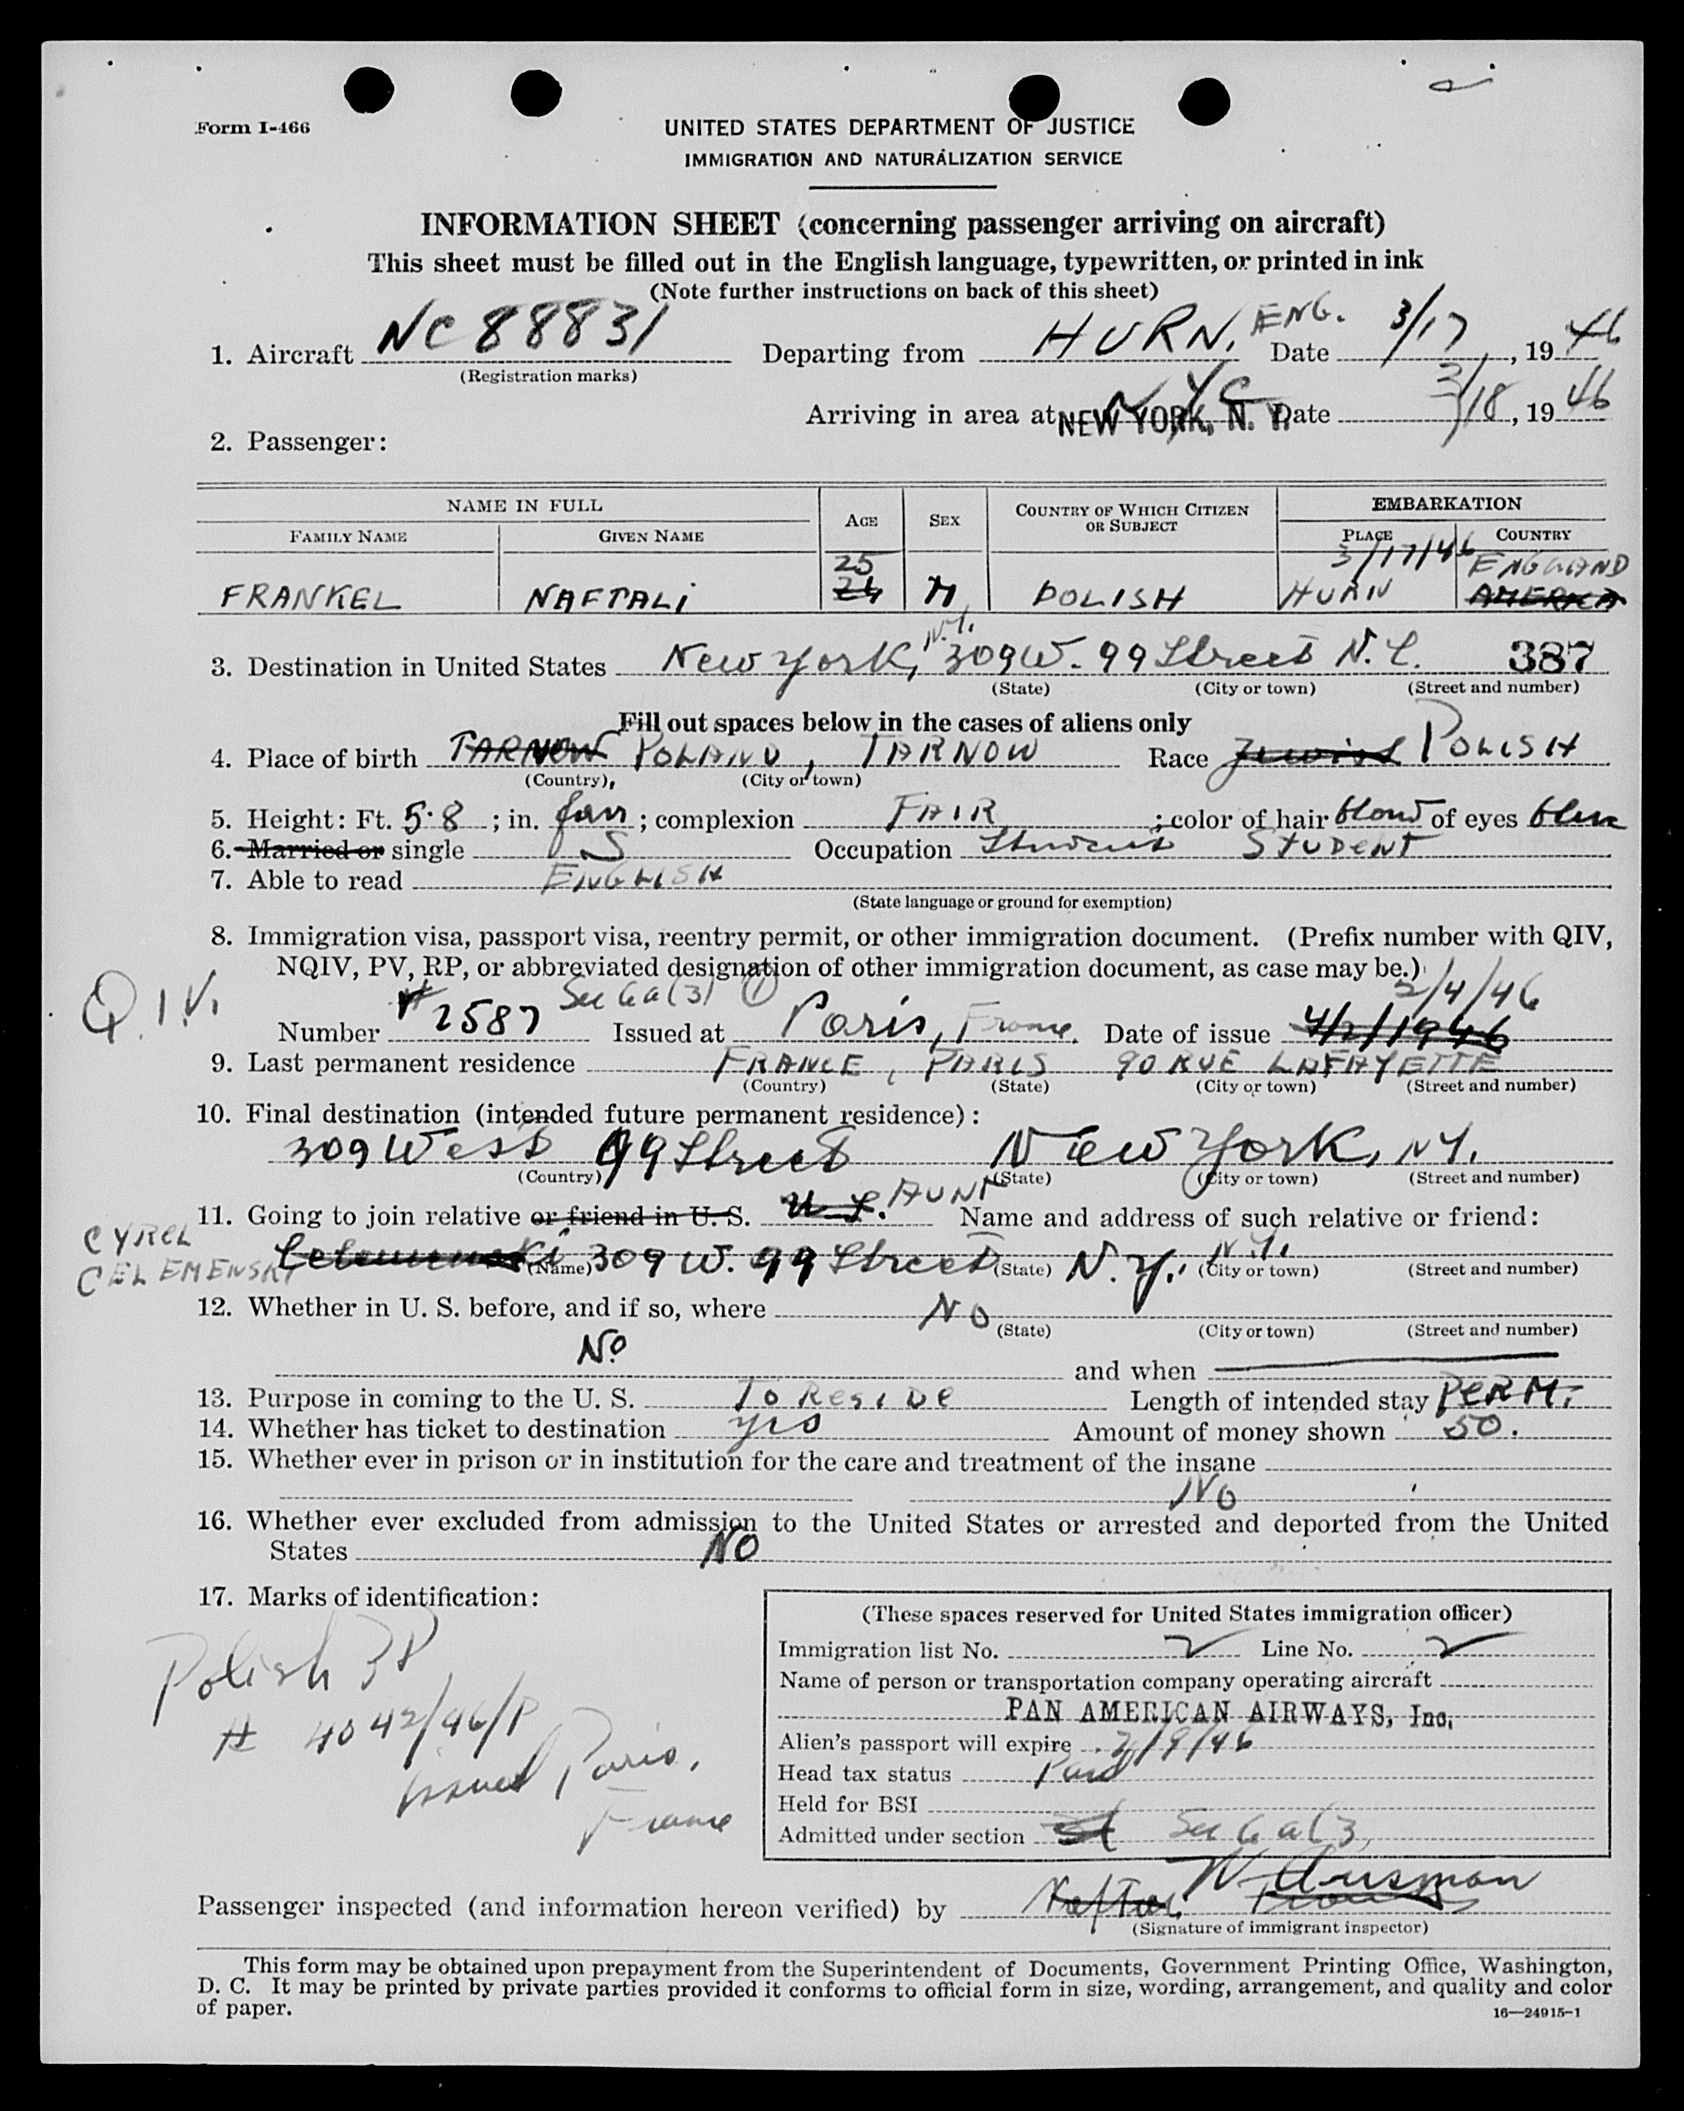 Form I-466
UNITED STATES DEPARTMENT OF JUSTICE
IMMIGRATION AND NATURALIZATION SERVICE
INFORMATION SHEET (concerning passenger arriving on aircraft)
This sheet must be filled out in the English language, typewritten, or printed in ink
(Note further instructions on back of this sheet)
1. Aircraft NC88831 Departing from HURN, ENG. Date 3/17, 1946
(Registration marks)
Arriving in area at NEW YORK, N. Y. NYC Date 3/18, 1946
2. Passenger:
NAME IN FULL AGE SEX COUNTRY OF WHICH CITIZEN OR SUBJECT EMBARKATION
FAMILY NAME GIVEN NAME PLACE COUNTRY
25 3/17/46 ENGLAND
FRANKEL NAFTALI 24 M POLISH HURN AMERICA
N.Y.
3. Destination in United States New York, 309 W. 99 Street N.Y. 387
(State) (City or town) (Street and number)
Fill out spaces below in the cases of aliens only
4. Place of birth TARNOW POLAND, TARNOW Race Jewish POLISH
(Country) (City or town)
5. Height: Ft. 5·8; in. ; complexion FAIR; color of hair blond of eyes blue
6. Married or single S Occupation Student STUDENT
7. Able to read ENGLISH
(State language or ground for exemption)
8. Immigration visa, passport visa, reentry permit, or other immigration document. (Prefix number with QIV,
NQIV, PV, RP, or abbreviated designation of other immigration document, as case may be.)
Q.I.V. Sec 6a(3) 1 2/4/46
Number # 2587 Issued at Paris, France. Date of issue 4/2/1946
9. Last permanent residence FRANCE, PARIS 90 RUE LAFAYETTE
(Country) (State) (City or town) (Street and number)
10. Final destination (intended future permanent residence):
309 West 99 Street New York, NY.
(Country) (State) (City or town) (Street and number)
11. Going to join relative or friend in U. S. AUNT Name and address of such relative or friend:
CYREL
CELEMENSKI 309 W. 99 Street N.Y. N.Y.
(Name) (State) (City or town) (Street and number)
12. Whether in U. S. before, and if so, where NO
(State) (City or town) (Street and number)
No and when
13. Purpose in coming to the U. S. To Reside Length of intended stay PERM.
14. Whether has ticket to destination yes Amount of money shown 50.
15. Whether ever in prison or in institution for the care and treatment of the insane
No
16. Whether ever excluded from admission to the United States or arrested and deported from the United
States NO
17. Marks of identification:
Polish PP
# 4042/46/P
issued Paris,
France
(These spaces reserved for United States immigration officer)
Immigration list No. 2 Line No. 2
Name of person or transportation company operating aircraft
PAN AMERICAN AIRWAYS, Inc.
Alien's passport will expire 2/9/46
Head tax status Paid
Held for BSI
Admitted under section Sec 6a(3)
Passenger inspected (and information hereon verified) by
(Signature of immigrant inspector)
This form may be obtained upon prepayment from the Superintendent of Documents, Government Printing Office, Washington,
D. C. It may be printed by private parties provided it conforms to official form in size, wording, arrangement, and quality and color
of paper.
16—24915-1